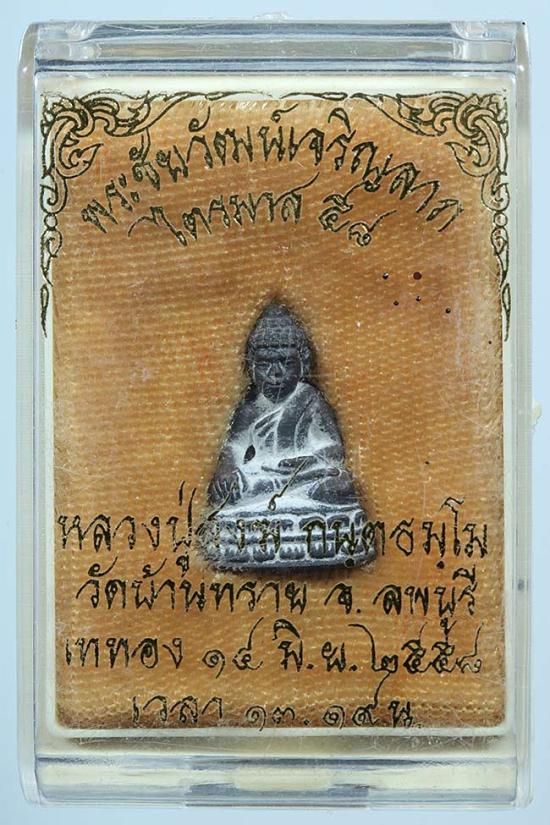 พระชัยวัฒน์เจริญลาภ
ไตรมาส ๕๘
หลวงปู่ กนฺตธมฺโม
วัดบ้านทราย จ. ลพบุรี
เททอง ๑๔ มิ.ย. ๒๕๕๘
เวลา ๑๓.๑๙ น.